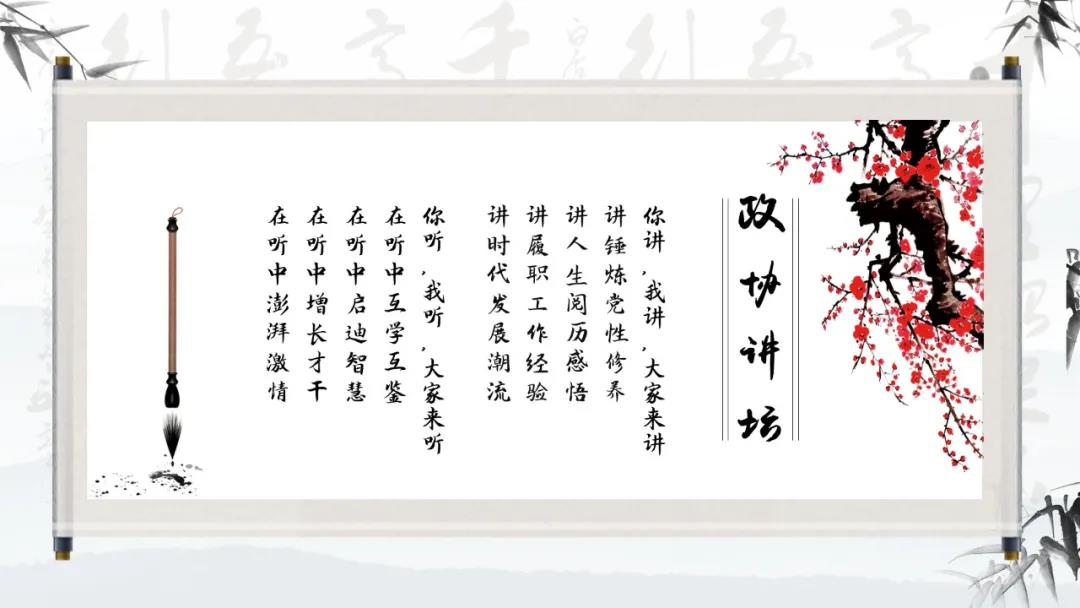 政协讲坛
你讲，我讲，大家来讲
讲锤炼党性修养
讲人生阅历感悟
讲履职工作经验
讲时代发展潮流
你听，我听，大家来听
在听中互学互鉴
在听中启迪智慧
在听中增长才干
在听中澎湃激情